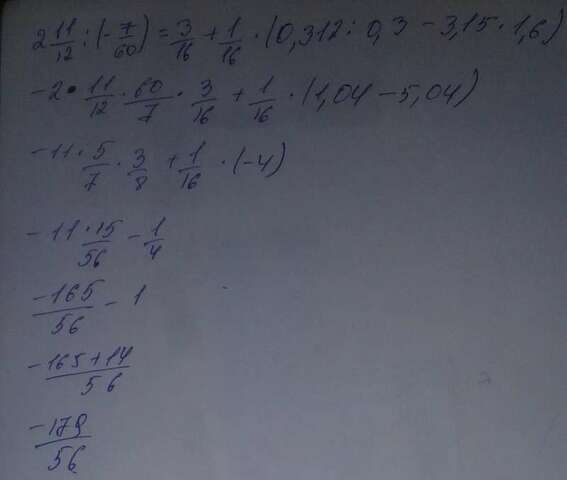 2 11/12 : (- 7/60) = 3/16 + 1/16 · (0,312 : 0,3 - 3,15 · 1,6)
-2 · 11/12 · 60/7 · 3/16 + 1/16 · (1,04 - 5,04)
-11 · 5/7 · 3/8 + 1/16 · (-4)
-11 · 15/56 - 1/4
-165/56 - 1
-165+14/56
-179/56